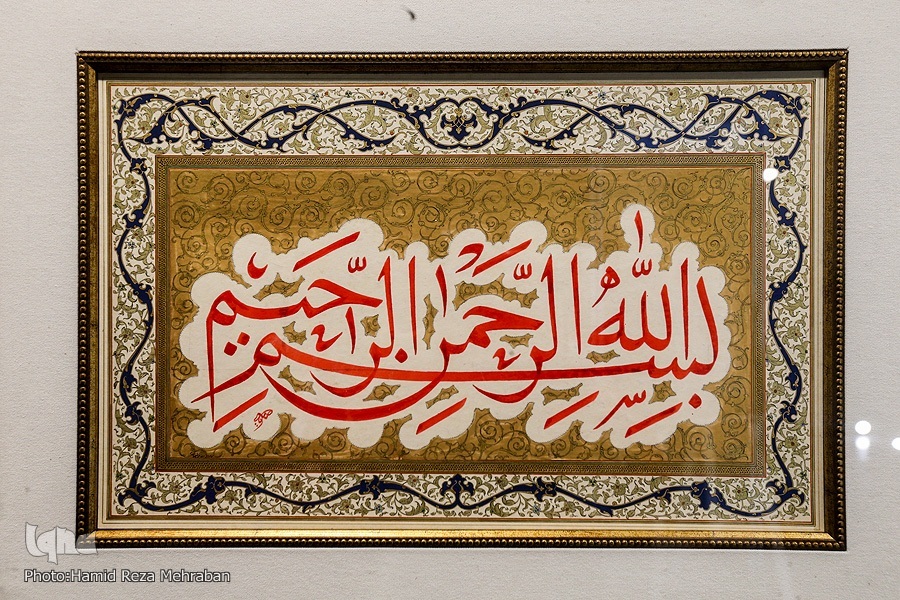 بسم الله الرحمن الرحیم
iqna
Photo:Hamid Reza Mehraban